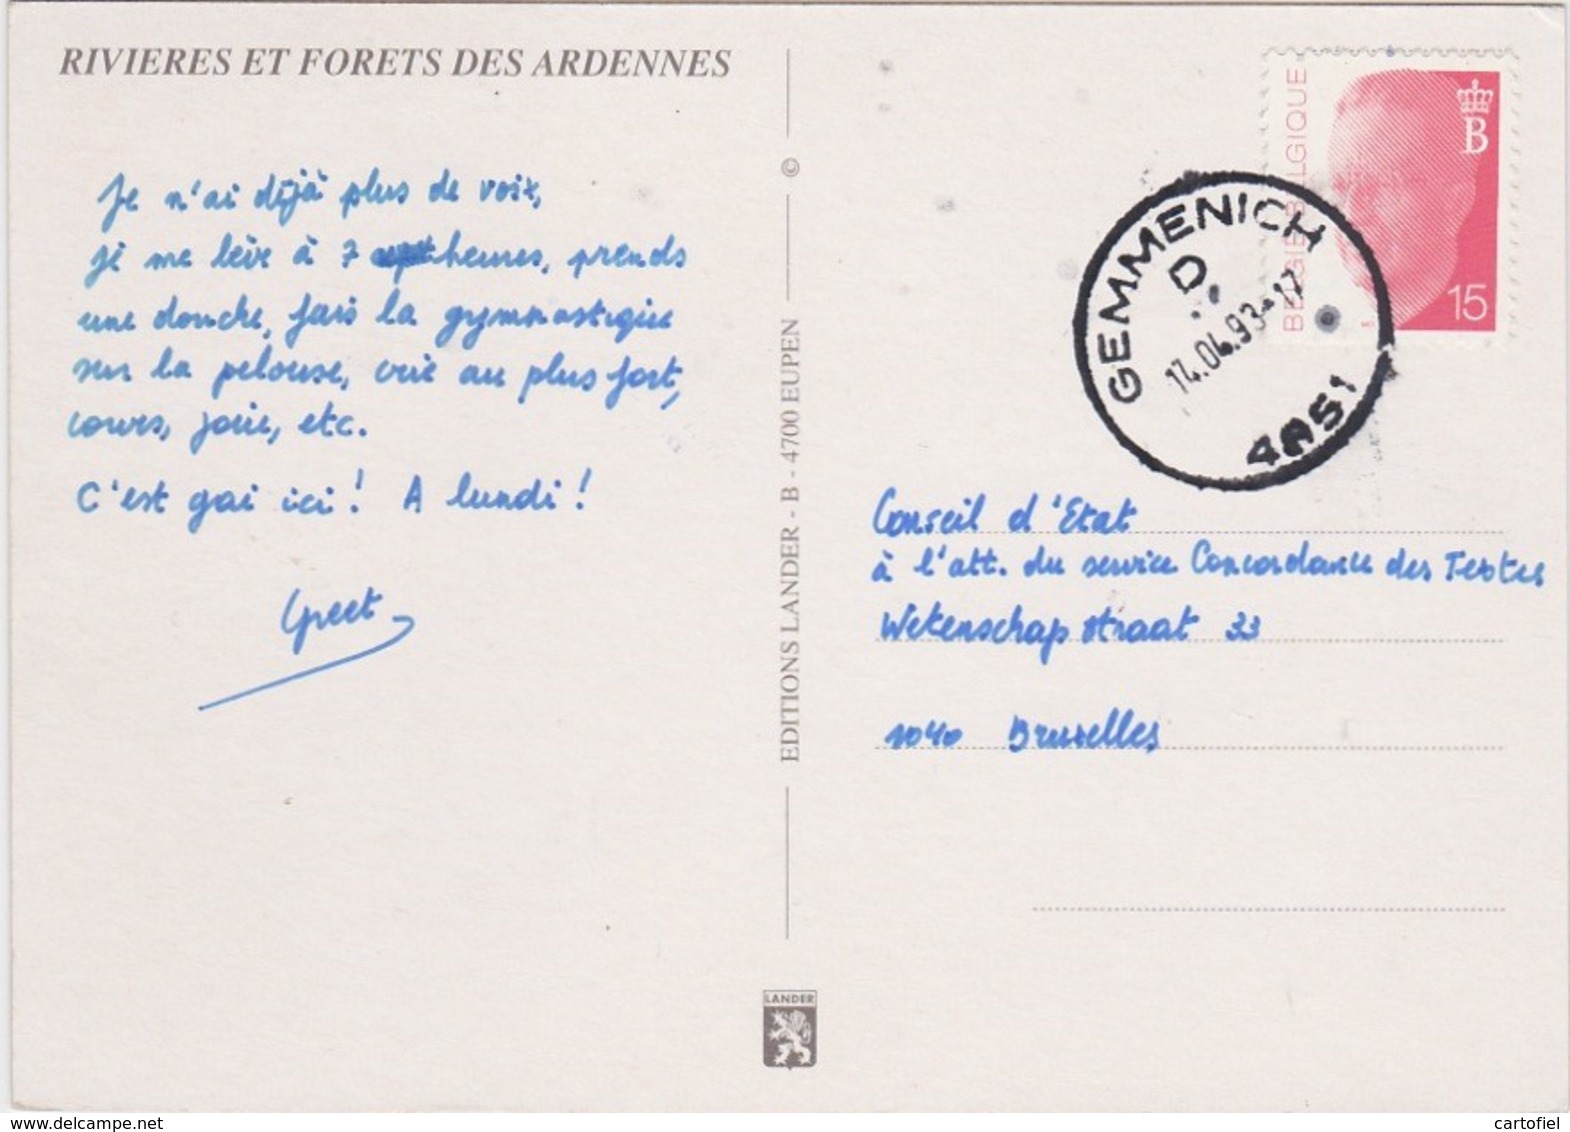 RIVIERES ET FORETS DES ARDENNES
Je n'ai déjà plus de voix,
je me lève à 7 heures, prends
une douche, fais la gymnastique
sur la pelouse, crie au plus fort,
cours, joue, etc.
C'est gai ici! A lundi!
Greet
EDITIONS LANDER - B - 4700 EUPEN ©
LANDER
BELGIE BELGIQUE
B
15
GEMMENICH
D.
14.04.93-12
4851
Conseil d'Etat
à l'att. du service Concordance des Textes
Wetenschapstraat 33
1040 Bruxelles
www.delcampe.net
cartofiel